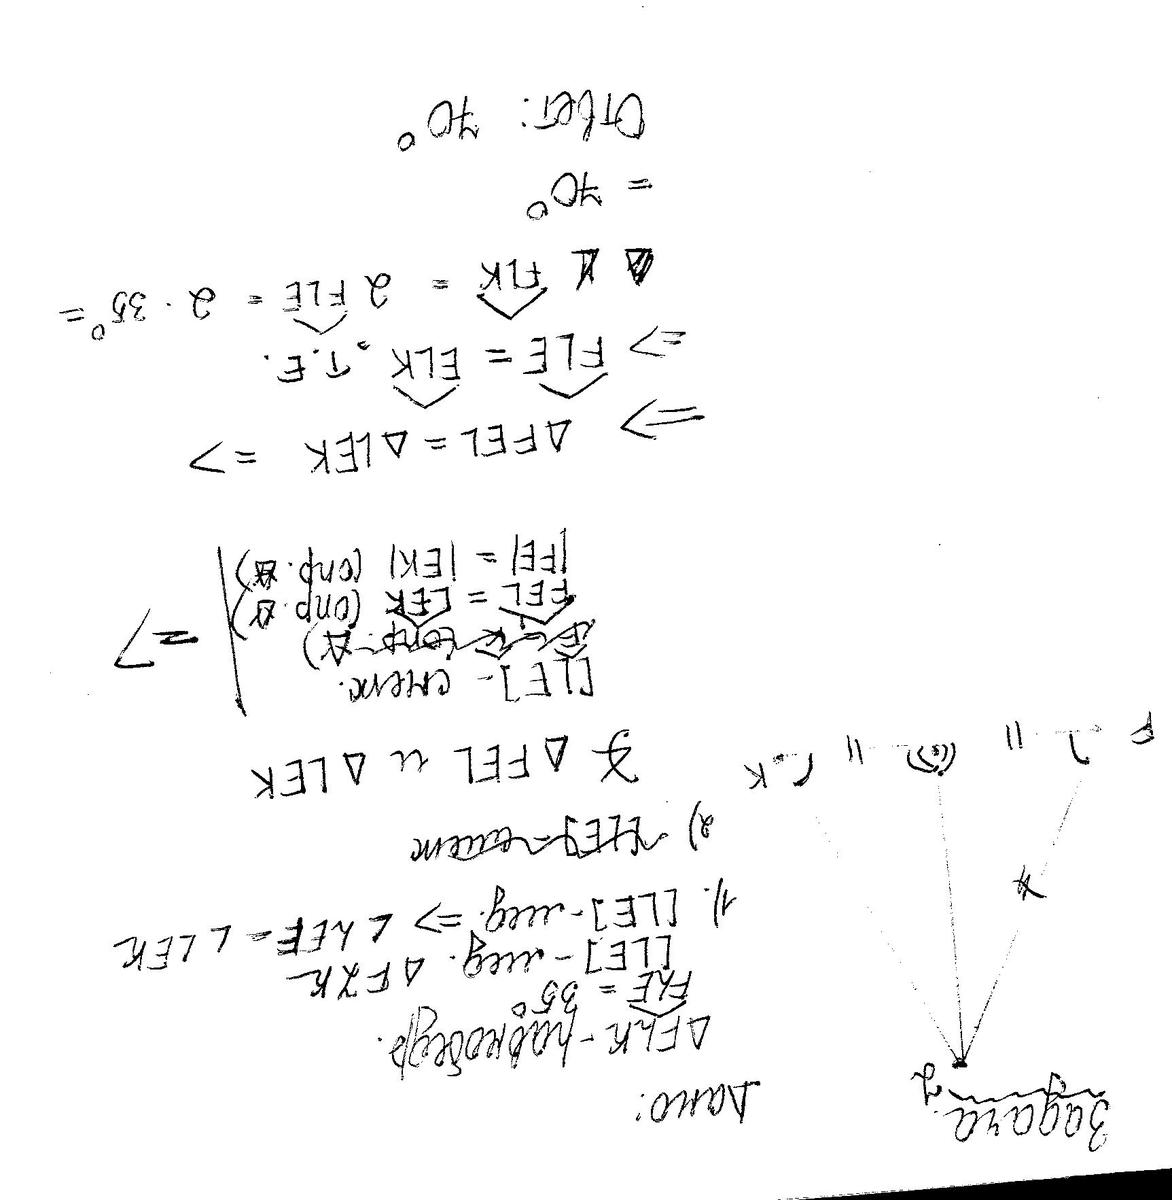 Задача.
L
F
K
Дано:
△FLK - равнобедр.
FLE = 35°
[LE] - мед. △FLK
1). [LE] - мед. => ∠LEF = ∠LEK
2) [LE] - 
△FEL и △LEK
[LE] - смеж.
FEL = LEK (опр. )
|FE| = |EK| (опр. )
=>
=> △FEL = △LEK =>
=> FLE = ELK. Т.Е.
FLK = 2 FLE = 2 · 35° =
= 70°
Ответ: 70°